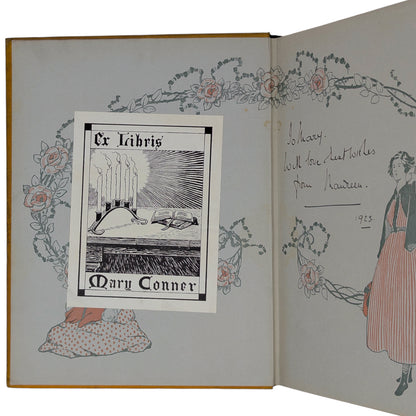 Ex Libris
Mary Conner
To Mary.
With best wishes
from Maureen.
1923